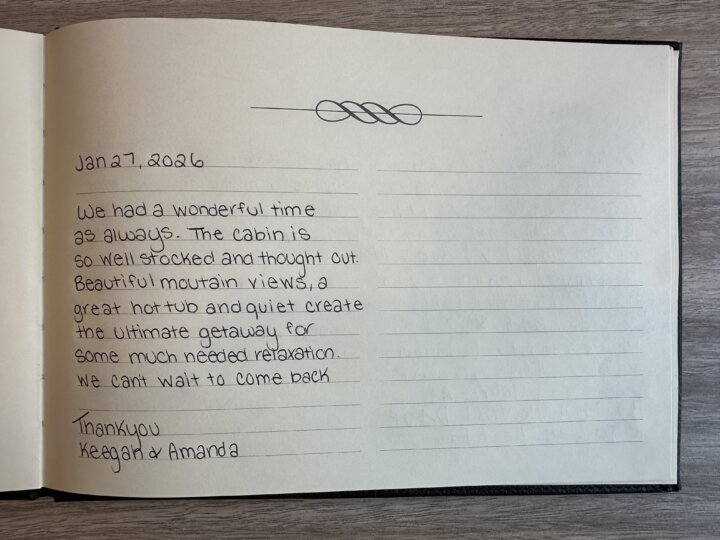 Jan 27, 2026
We had a wonderful time
as always. The cabin is
so well stocked and thought out.
Beautiful moutain views, a
great hot tub and quiet create
the ultimate getaway for
some much needed relaxation.
We can't wait to come back
Thankyou
Keegan & Amanda